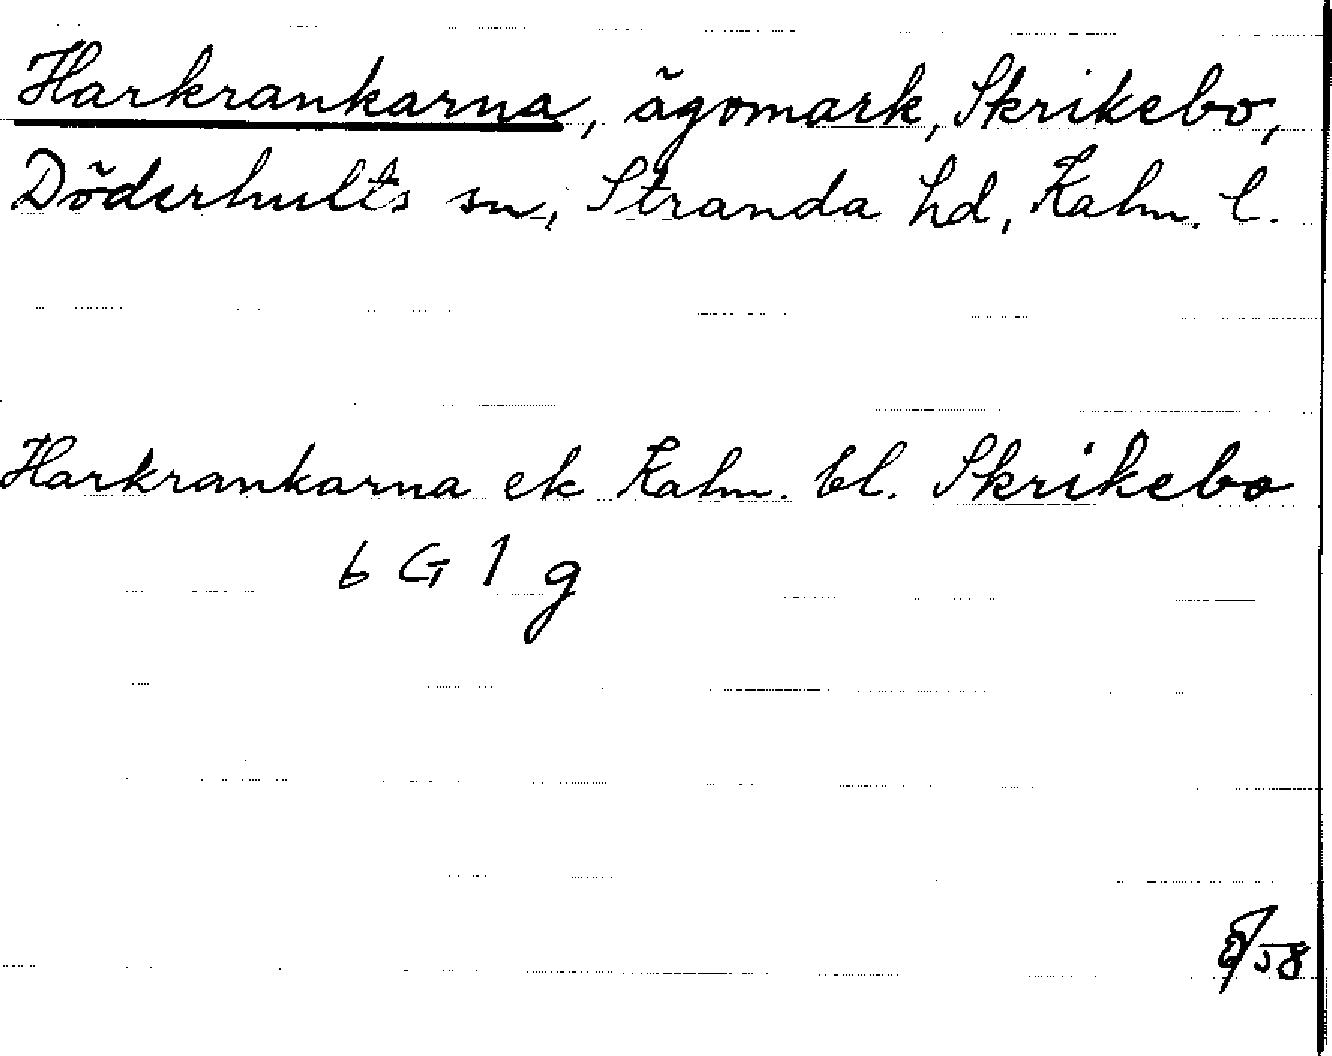 Harkrankarna, ägomark, Skrikebo,
Döderhults sn, Stranda hd, Kalm. l.
Harkrankarna ek Kalm. bl. Skrikebo
6 G 1 g